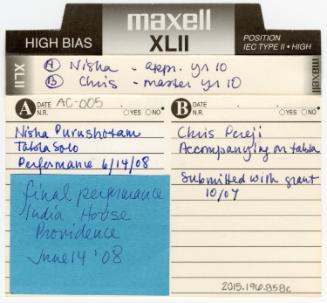 maxell
HIGH BIAS
XLII
POSITION
IEC TYPE II • HIGH
XLII
maxell
A Nisha - appr. yr 10
B Chris - master yr 10
A DATE AC-005
N.R. YES NO
Nisha Purushotam
Tabla Solo
Performance 6/14/08
final performance
India House
Providence
June 14 '08
B DATE
N.R. YES NO
Chris Pereji
Accompanying on tabla
Submitted with grant
10/07
2015.196.858c